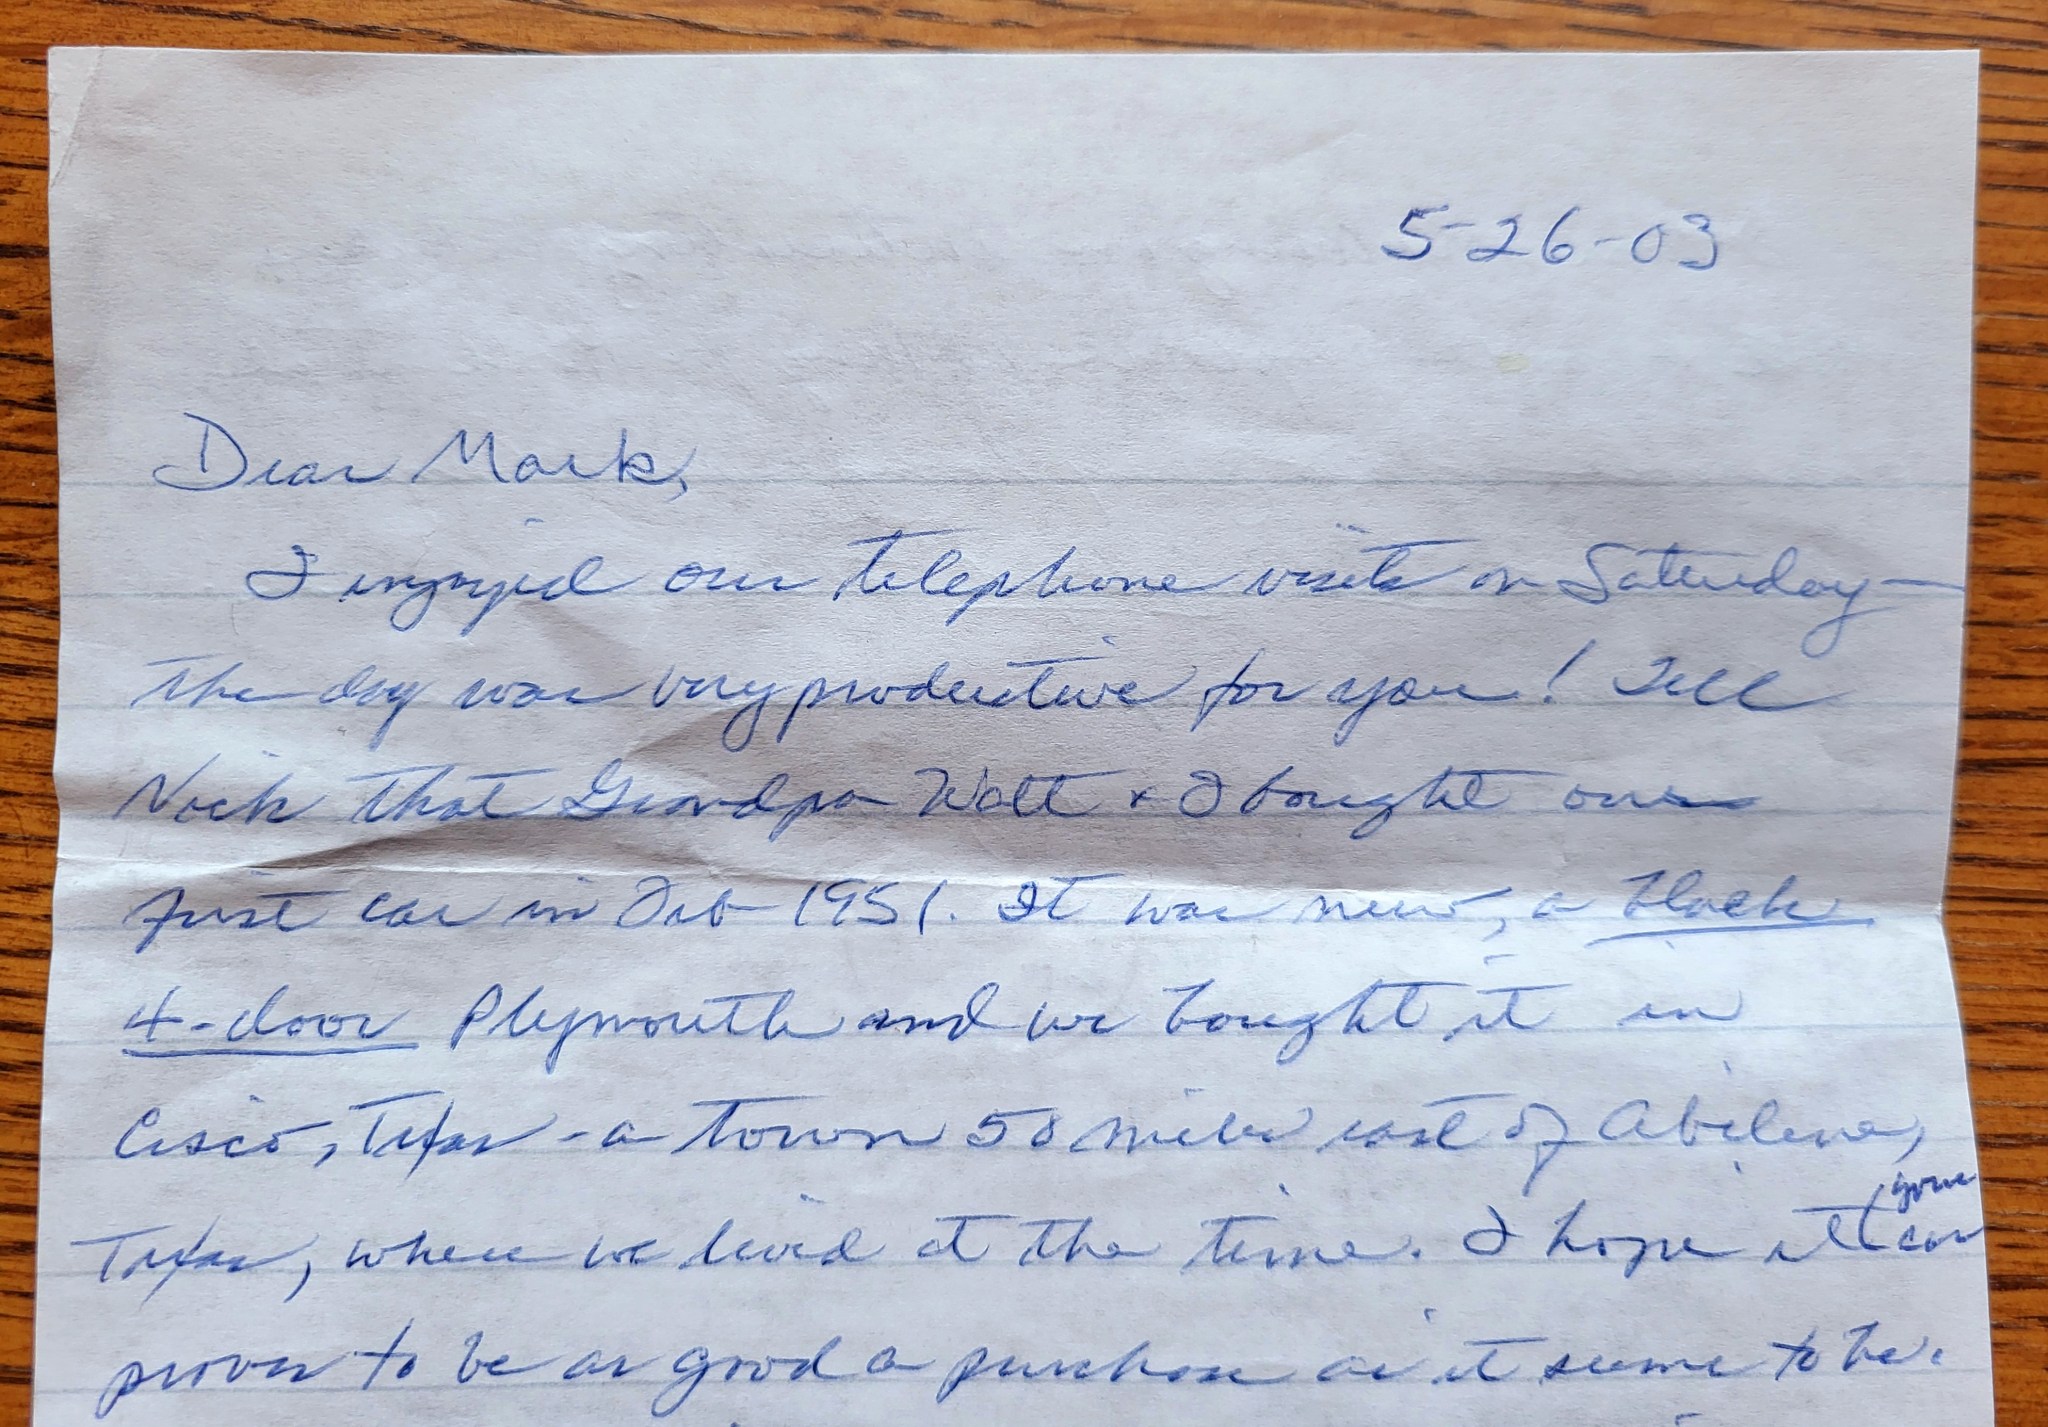 5-26-03
Dear Mark,
I enjoyed our telephone visits on Saturday —
the day was very productive for you! Tell
Nick that Grandpa Walt & I bought our
first car in Feb 1951. It was new, a black
4-door Plymouth and we bought it in
Cisco, Texas - a town 50 miles east of Abilene,
Texas, where we lived at the time. I hope it (your car
proves to be as good a purchase as it seems to be.